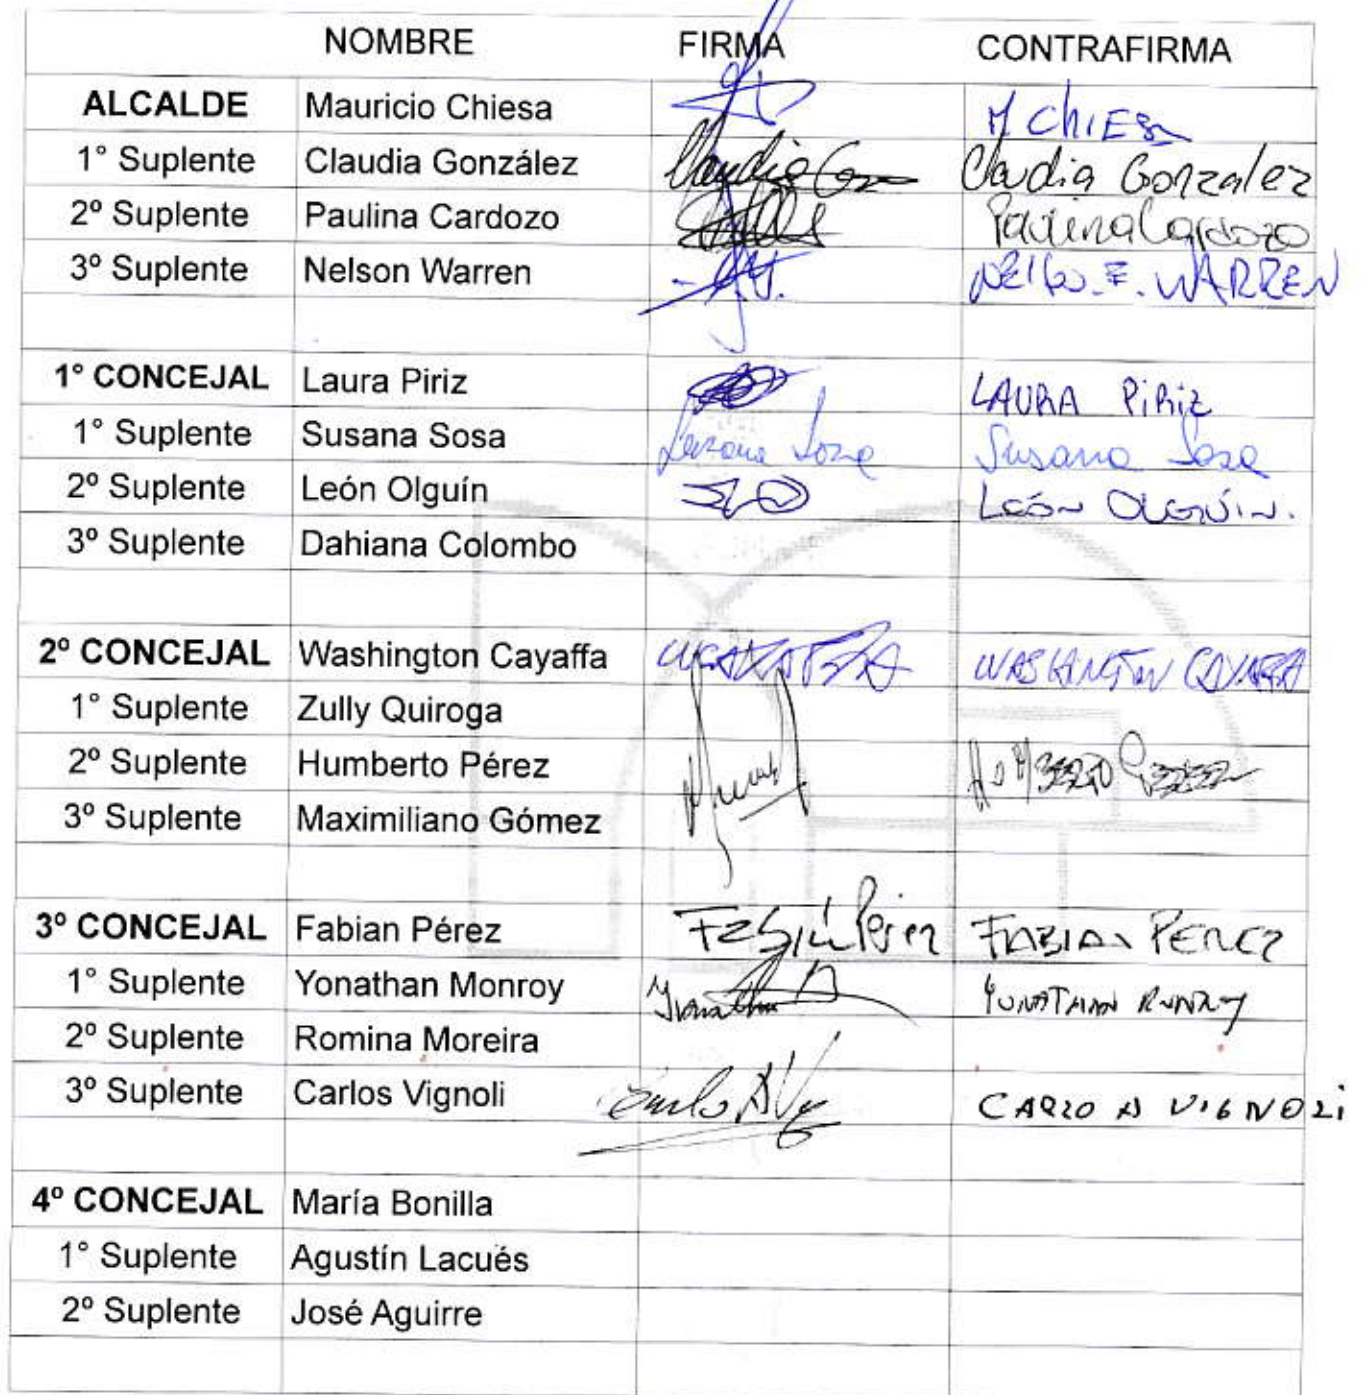 NOMBRE FIRMA CONTRAFIRMA
ALCALDE Mauricio Chiesa M CHIESA
1° Suplente Claudia González Claudia Gon Claudia Gonzalez
2º Suplente Paulina Cardozo Paulina Cardozo
3º Suplente Nelson Warren WARREN
1° CONCEJAL Laura Piriz LAURA PiRiz
1° Suplente Susana Sosa Susana Sosa Susana Sosa
2º Suplente León Olguín LEÓN OLGUÍN.
3º Suplente Dahiana Colombo
2º CONCEJAL Washington Cayaffa WASHINGTON CAYAFFA
1° Suplente Zully Quiroga
2º Suplente Humberto Pérez
3º Suplente Maximiliano Gómez
3º CONCEJAL Fabian Pérez Fabián Perez FABIAN PEREZ
1° Suplente Yonathan Monroy Yonathan YONATHAN
2º Suplente Romina Moreira
3º Suplente Carlos Vignoli CARLO A VIGNOLi
4º CONCEJAL María Bonilla
1° Suplente Agustín Lacués
2º Suplente José Aguirre